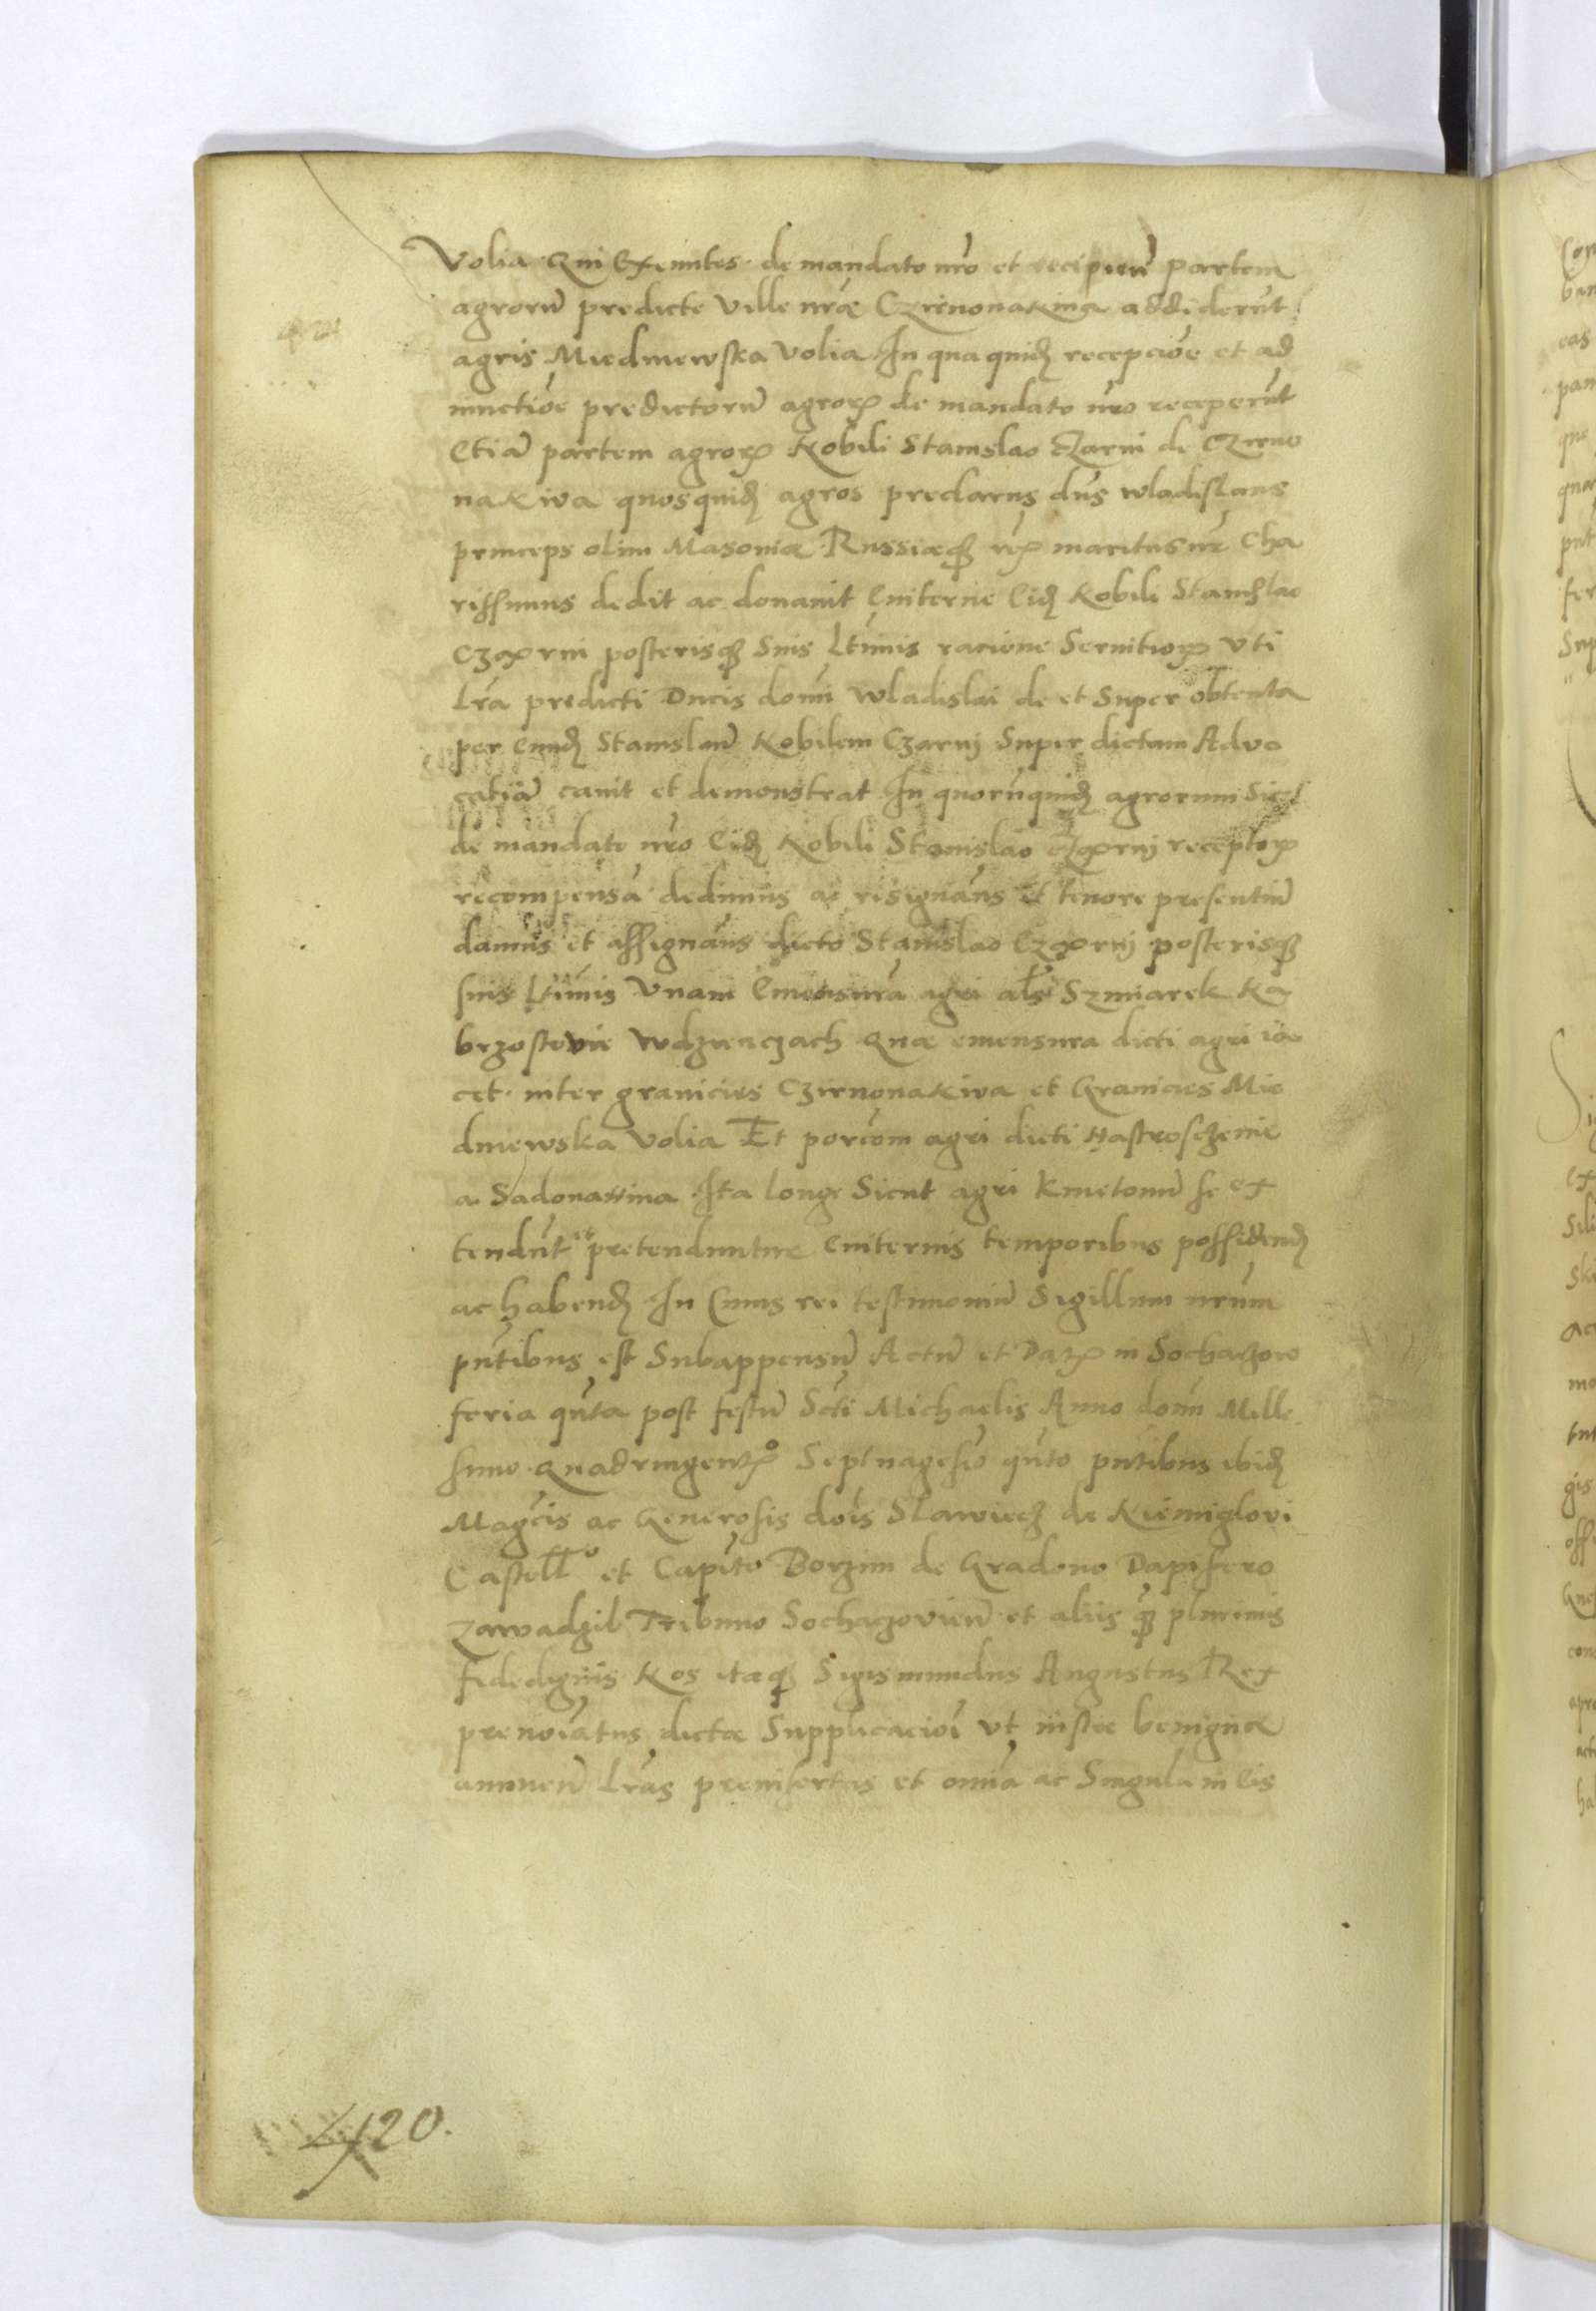 Volia Qui Exeuntes de mandato nr̄o et recipieñ partem
agrorū predicte Ville nr̄ae Czirnonakiva addiderūt
agris Miedniewska Volia In qua quidꝫ recepciōe et ad
iunctiōe predictorū agroꝝ de mandato nr̄o receperūt
Etiā partem agroꝝ Nobili Stanislao Czarni de Czirno
nakiva quosquidꝫ agros preclarus dn̄s wladislaus
princeps olim Masoviae Russiaeqꝫ rꝫ maritus nr̄ Cha
rissimus dedit ac donavit Eviterne Eidꝫ Nobili Stanislao
Czarni posterisqꝫ Suis Ltīmis racione Servitioꝝ Vti
Lr̄a predicti Ducis domī Wladislai de et Super obtenta
per Eundꝫ Stanislaū Nobilem Czarnij Super dictam Advo
catiā canit et demonstrat In quorūquidꝫ agrorum Sic
de mandato nr̄o Eidꝫ Nobili Stanislao Czarnij receptoꝝ
recompensā dedimus ac resignavīs et tenore presentiū
damus et assignavīs dicto Stanislao Czarnij posterisqꝫ
suis Ltīmis Vnam Emensurā agri al̄s Szmiarek Na
brzostevie Wdzienczach Quae emensura dicti agri ia
cet inter granicies Czirnonakiva et Granicies Mie
dniewska Volia Et porcōm agri dicti Nastroschenie
a Sadonassina Ita longe Sicut agri Kmetonū se ex
tendūt et pretenduntur Eviternis temporibus possidendꝫ
ac habendꝫ In Cuius rei testimoniū Sigillum nr̄um
pn̄tibus est Subappensū Actū et Datꝫ in Sochaczow
feria qūta post festū Scti Michaelis Anno domī Mille
simo Quadringentꝫo Septuagesīo qūto pn̄tibus ibidꝫ
Magcīs ac Generosis doīs Slawiecz de Niemiglovi
Castellō et Capīto Borzim de Gradono Dapifero
Zawadzil Tribuno Sochazovieñ et aliis qꝫ plurimis
fidedignis Nos itaqꝫ Sigismundus Augustus Rex
prenoīatus dictae Supplicacioī vt iustae benignae
annueñ Lr̄as preinsertas et omīa ac Singula in Eis
420.